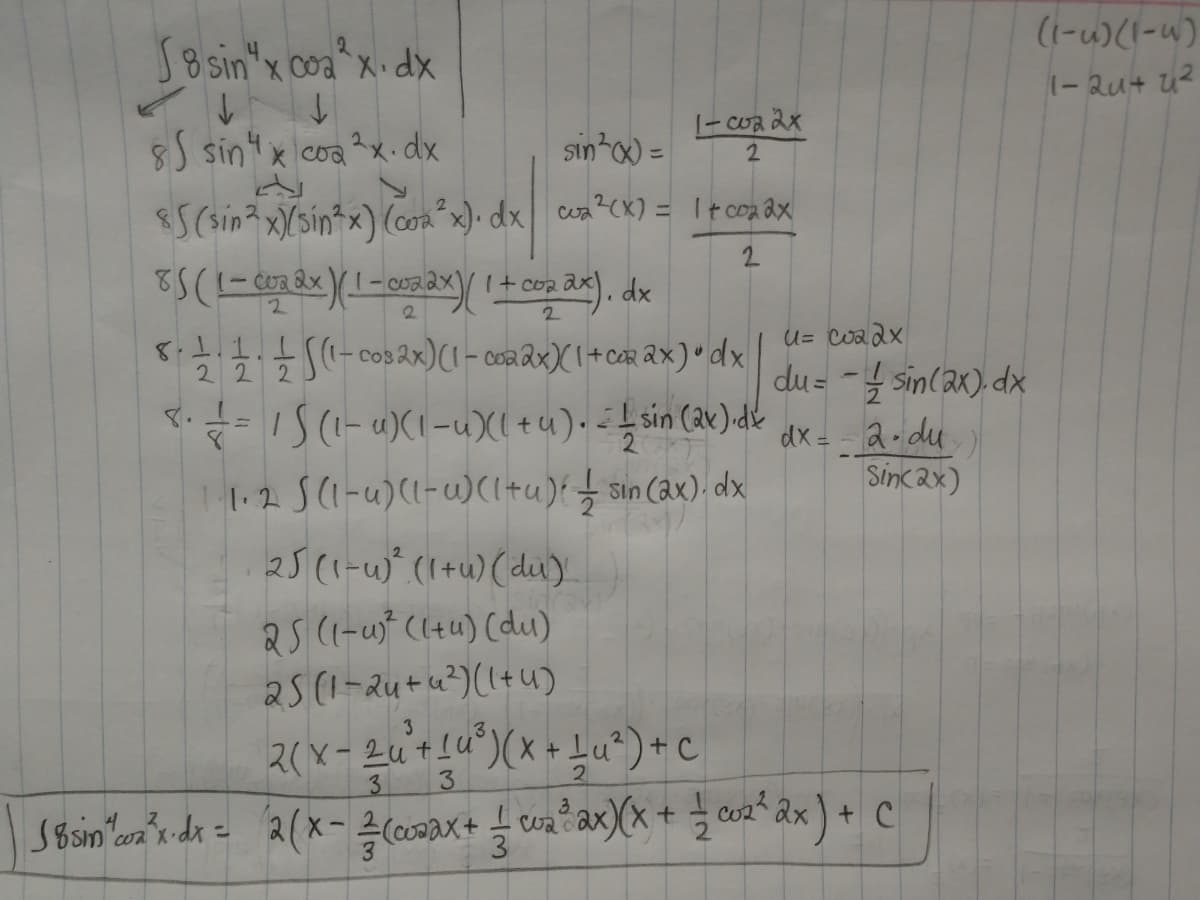 ∫8 sin⁴x cos²x·dx
(1-u)(1-u)
1-2u+u²
8∫ sin⁴x cos²x·dx
sin²(x) = (1-cos 2x)/2
8∫(sin²x)(sin²x)(cos²x)·dx
cos²(x) = (1+cos2x)/2
8∫((1-cos2x)/2)((1-cos2x)/2)((1+cos2x)/2)·dx
8·1/2·1/2·1/2 ∫(1-cos2x)(1-cos2x)(1+cos2x)·dx
u= cos2x
du= -1/2 sin(2x)·dx
8·1/8 = 1∫(1-u)(1-u)(1+u)·-1/2 sin(2x)·dx
dx = -2·du/sin(2x)
1·2 ∫(1-u)(1-u)(1+u)·1/2 sin(2x)·dx
2∫(1-u)²(1+u)(du)
2∫(1-u)²(1+u)(du)
2∫(1-2u+u²)(1+u)
2(x-2/3u³+1/3u³)(x+1/2u²)+C
∫8sin⁴cos²x·dx = 2(x-2/3(cos2x+1/3cos³2x)(x+1/2cos²2x)+C